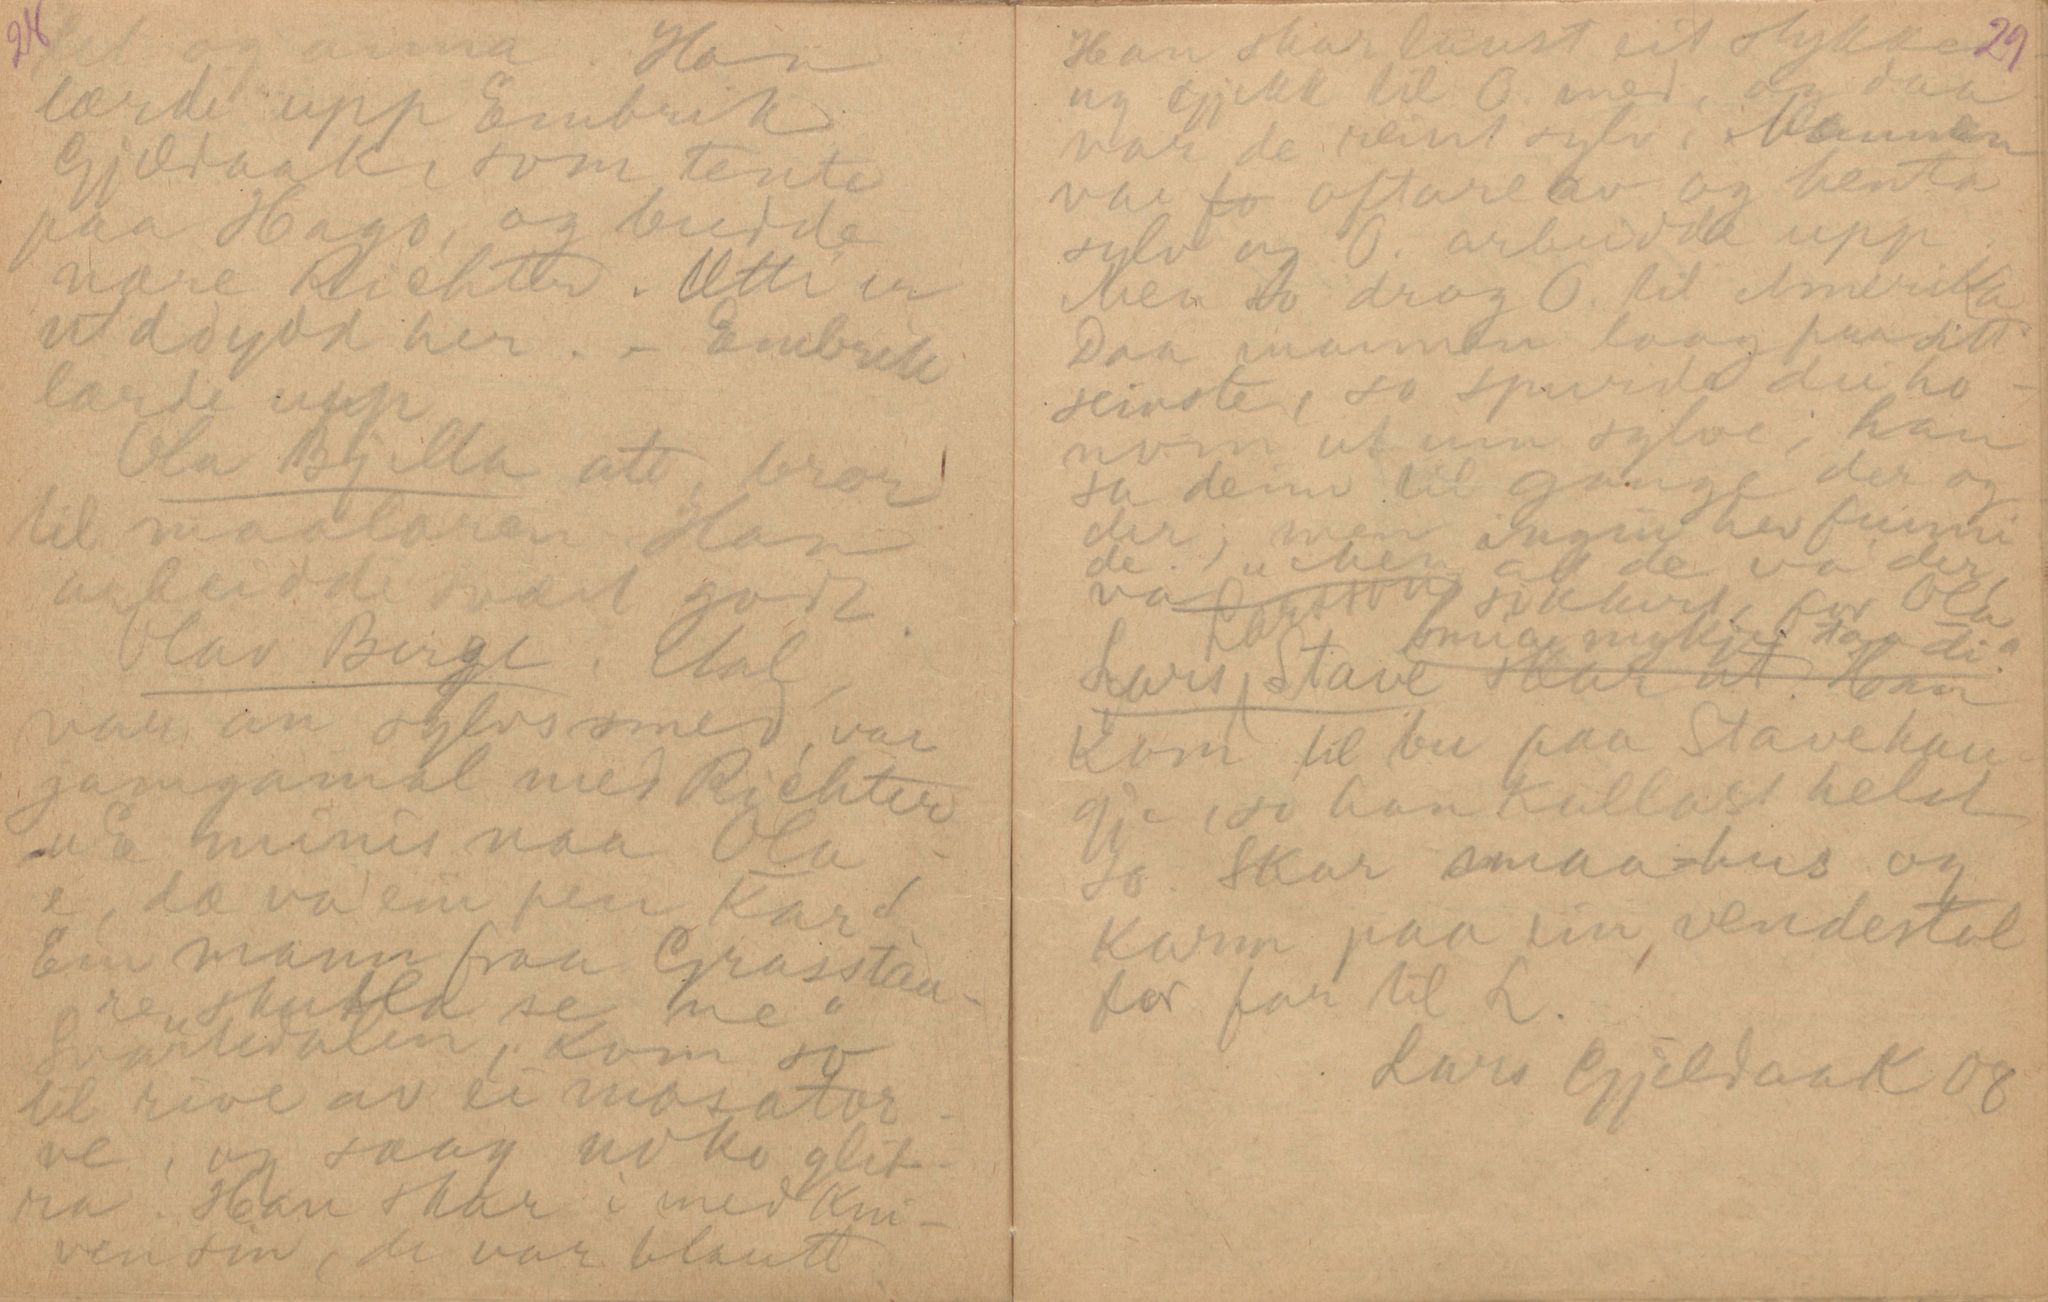 28
og anna. Han
lærde upp Embrik
Gjeldaak, som tente
paa Hago, og budde
nære Richter. Ætti er
utdøydd her. - Embrik
lærde upp
Ola Bjella ate, bror
til maalaren Han
arbeidde svært godt.
Olav Berge. Aal,
var an sylvssmed, var
jamgamal med Richter
"E minis naa Ola
e, dæ va ein pen Kar".
Ein mann fraa Grasstau-
re, skulde se ne"
Svartedalen, kom so
til rive av ei mosator-
ve, og saag noko glit-
ra. Han skar i med Kni-
ven sin, de var blautt
29
Han skar laust eit stykke
og gjekk til O. med, og daa
var de reint sylv. Mannen
var so oftare av og henta
sylv og O. arbeidde upp.
Men so drog O. til Amerika
Daa mannen laag paa sitt
seivste, so spurde dei ho-
nom ut um sylve; han
sa deim til gange der og
der, men ingin hev funni
de. "Men at de va der,
va sikkert, for Ola
smia mykji taa di."
Larsson
Lars Stave skar ut. Han
Kom til bu paa Stavehau-
gje, so han Kallast helst
so. Skar smaa-hus og
Karm paa ein vendestol
for far til L.
Lars Gjeldaak 08